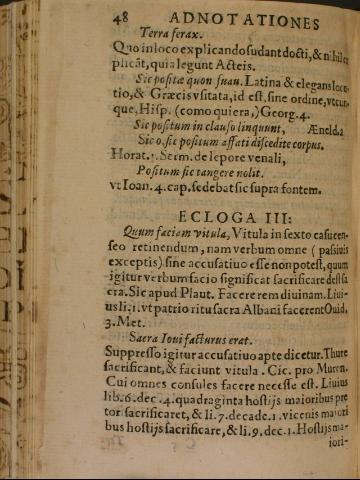 48 ADNOTATIONES
Terra ferax.
Quo in loco explicando sudant docti, & nihil ex
plicāt, quia legunt Acteis.
Sic positæ quon suau. Latina & elegans locu-
tio, & Græcis vsitata, id est, sine ordine, vtcun-
que, Hisp. (como quiera,) Georg. 4.
Sic positum in clauso linquunt, Æneld.2
Sic o, sic positum affati discedite corpus.
Horat. 2. Serm. de lepore venali,
Positum sic tangere nolit.
vt Ioan. 4. cap. sedebat sic supra fontem.
ECLOGA III:
Quum faciam vitula, Vitula in sexto casu cen-
seo retinendum, nam verbum omne ( passiuis
exceptis) sine accusatiuo esse non potest, quum
igitur verbum facio significat sacrificare deest sa
cra. Sic apud Plaut. Facere rem diuinam. Liui-
us li. 1. vt patrio ritu sacra Albani facerent Ouid,
3. Met.
Sacra Ioui facturus erat.
Suppresso igitur accusatiuo apte dicetur. Thure
sacrificant, & faciunt vitula. Cic. pro Muren.
Cui omnes consules facere necesse est. Liuius
lib. 6. dec. 4. quadraginta hostijs maioribus præ
tor sacrificaret, & li. 7. decade. 1. vicenis maiori
bus hostijs sacrificare, & li. 9. dec. 1. Hostijs ma-
iori-